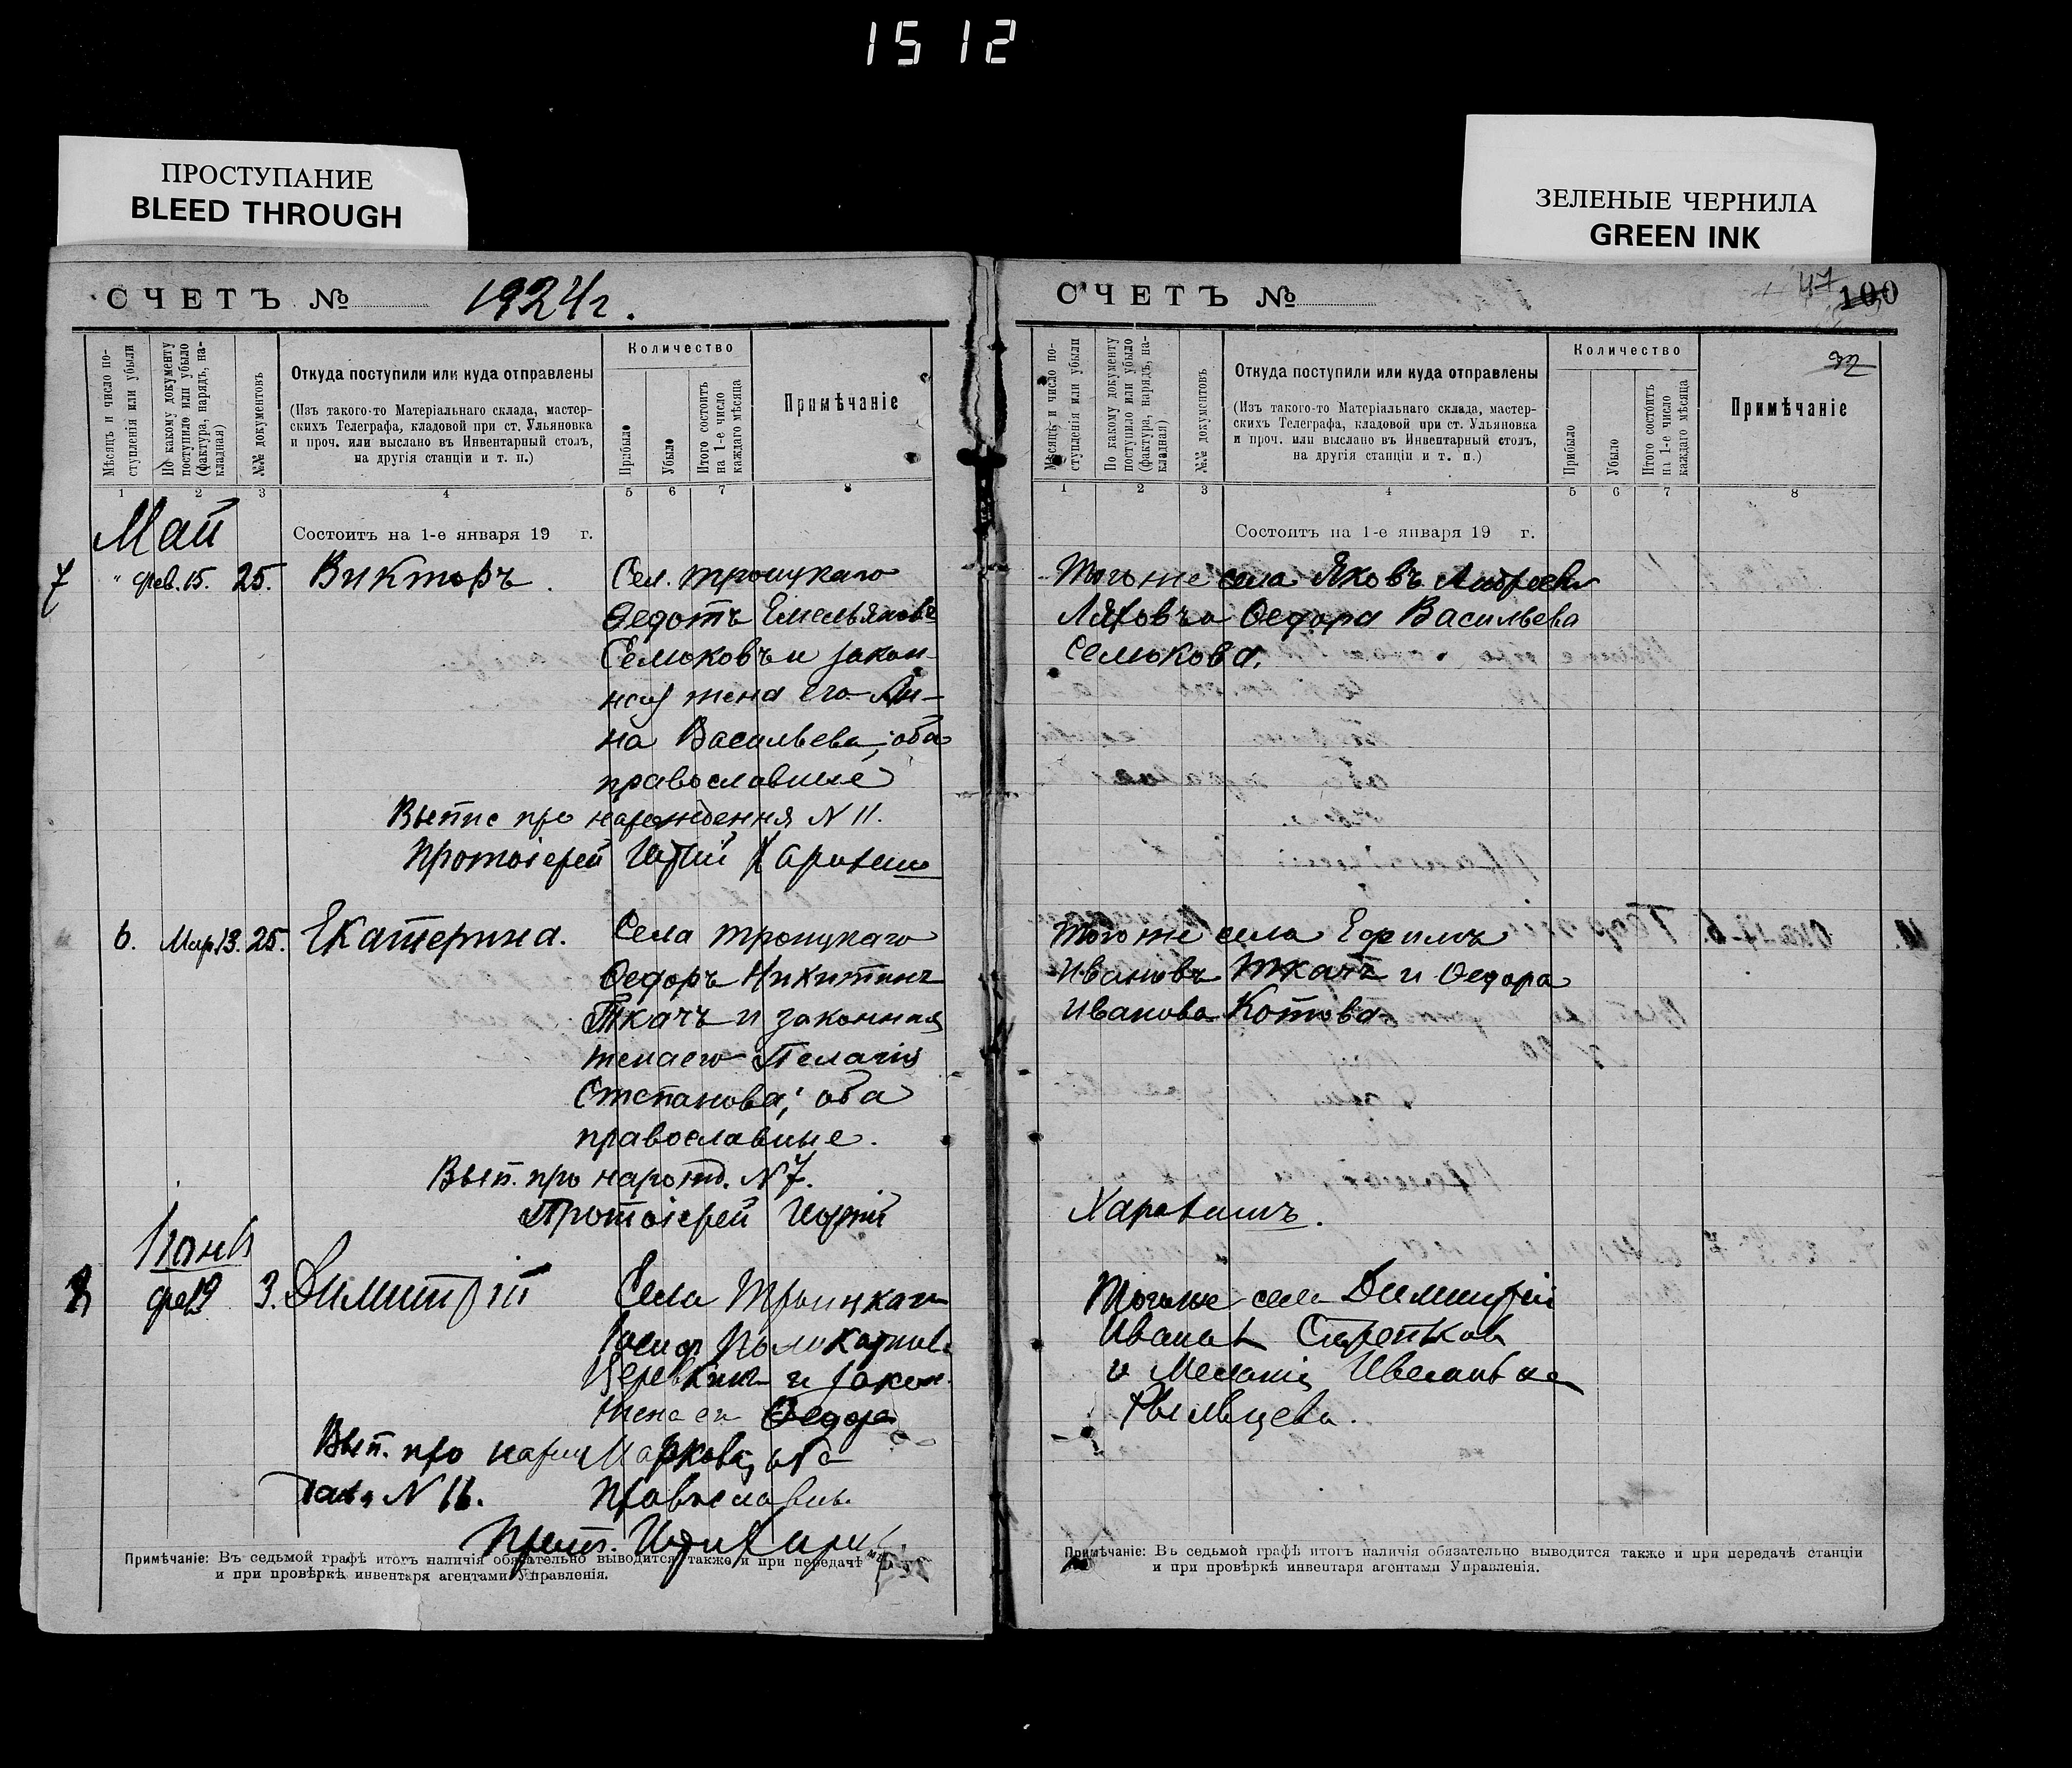 1512
ПРОСТУПАНИЕ
BLEED THROUGH
ЗЕЛЕНЫЕ ЧЕРНИЛА
GREEN INK
СЧЕТЪ № 1924 г.
Мѣсяцъ и число поступленія или убыли
По какому документу поступило или убыло (фактура, нарядъ, накладная)
№№ документовъ
Откуда поступили или куда отправлены
(Изъ такого-то Матеріальнаго склада, мастер-
скихъ Телеграфа, кладовой при ст. Ульяновка
и проч. или выслано въ Инвентарный столъ,
на другія станціи и т. п.)
Количество
Прибыло
Убыло
Итого состоитъ на 1-е число каждаго мѣсяца
Примѣчаніе
1 2 3 4 5 6 7 8
Май
Состоитъ на 1-е января 19 г.
7 " фев. 15. 25. Викторъ. Сел. Троицкаго
Ѳедотъ Емельяновъ
Семоковъ и закон-
ная жена его Ан-
на Васильева, оба
православные
Выпис про нарождення N 11.
Протоіерей
6. Мар. 13. 25. Екатерина. Села Троицкаго
Ѳедоръ Никитинъ
Ткачъ и законная
жена его Пелагія
Степанова; оба
православные.
Вып. про нарожд. N 7.
Протоіерей
фев 19 3. Димитрій Села Троицкаго
и закон.
жена его Ѳедора
Вып. про Маркова, оба
N 16. Православн.
Прот.
Примѣчаніе: Въ седьмой графѣ итогъ наличія обязательно выводится также и при передачѣ
и при провѣркѣ инвентаря агентами Управленія.
СЧЕТЪ №
47
100
Мѣсяцъ и число поступленія или убыли
По какому документу поступило или убыло (фактура, нарядъ, накладная)
№№ документовъ
Откуда поступили или куда отправлены
(Изъ такого-то Матеріальнаго склада, мастер-
скихъ Телеграфа, кладовой при ст. Ульяновка
и проч. или выслано въ Инвентарный столъ,
на другія станціи и т. п.)
Количество
Прибыло
Убыло
Итого состоитъ на 1-е число каждаго мѣсяца
Примѣчаніе
1 2 3 4 5 6 7 8
Состоитъ на 1-е января 19 г.
Того же села Яковъ Андреевъ
Ляховъ и Ѳедора Васильева
Семокова.
Того же села Ефимъ
Ивановъ Ткачъ и Ѳедора
Иванова Котова
Того же села Димитрій
Иванов
и Меланія
Примѣчаніе: Въ седьмой графѣ итогъ наличія обязательно выводится также и при передачѣ станціи
и при провѣркѣ инвентаря агентами Управленія.